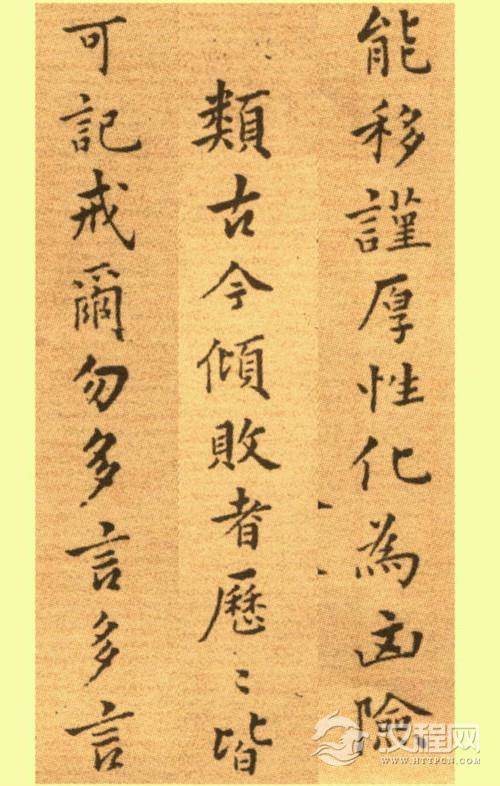 能移謹厚性化為凶險
類古今傾敗者歷〻皆
可記戒爾勿多言多言
汉程网
WWW.HTTPCN.COM